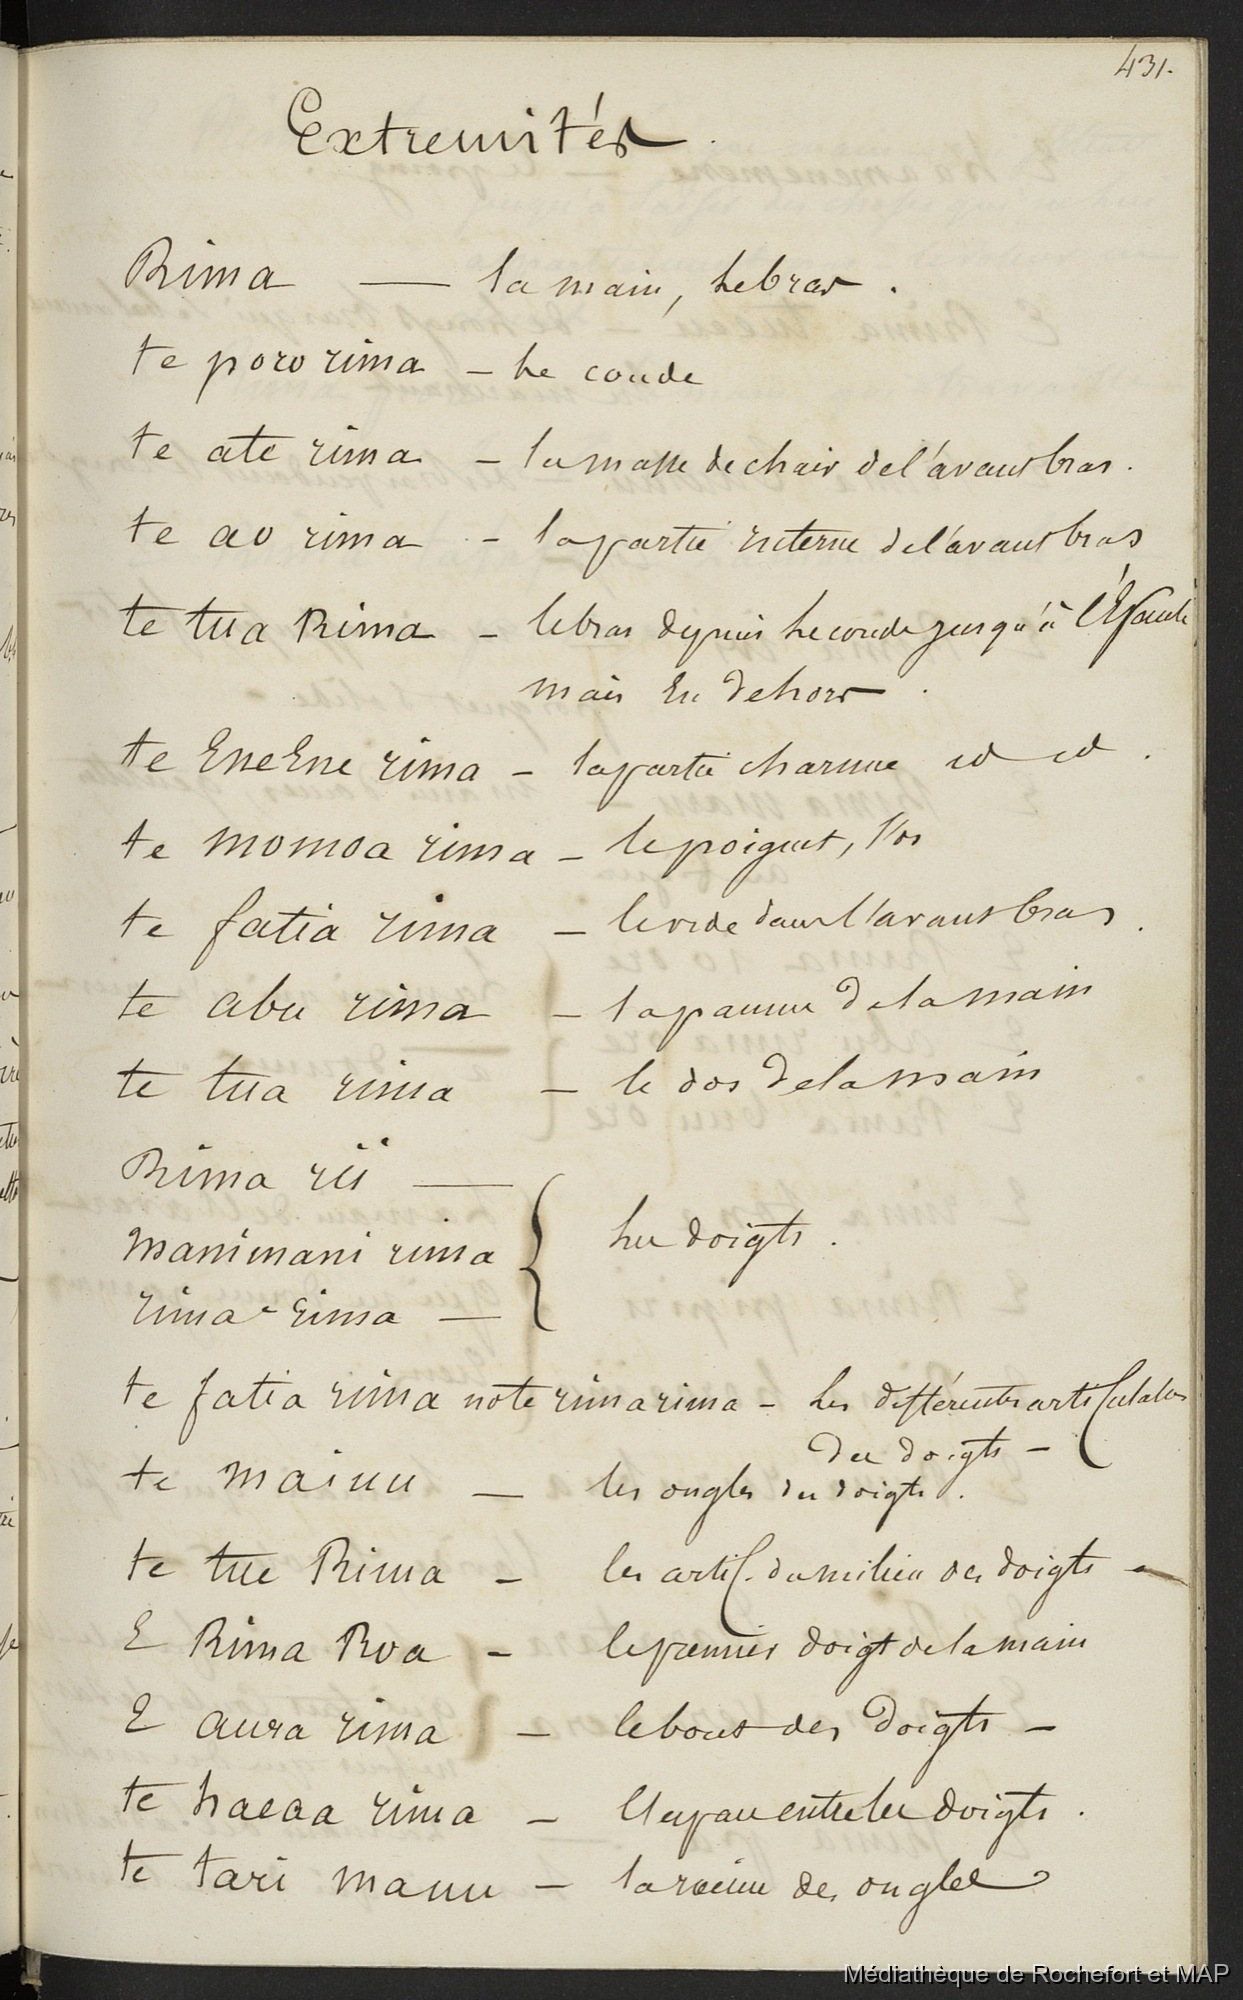 431.
Extremités.
Rima — la main, le bras.
te poro rima - le coude
te ate rima - la masse de chair de l'avant bras.
te ao rima - la partie interne de l'avant bras
te tua Rima - le bras depuis le coude jusqu'à l'Epaule
mais en dehors.
te EneEne rima - la partie charnue id id.
te momoa rima - le poignet, l'os
te fatia rima - le vide dans l'avant bras.
te abu rima - la paume de la main
te tua rima - le dos de la main
Rima rii —
manimani rima { les doigts.
rima-rima —
te fatia rima no te rimarima - les différentes articulations
des doigts -
te maiuu - les ongles des doigts.
te tue Rima - les artic. du milieu des doigts -
E Rima Roa - le premier doigt de la main
E aura rima - le bout des doigts -
te haeaa rima - l'espace entre les doigts.
te tari mauu - la racine des ongles
Médiathèque de Rochefort et MAP